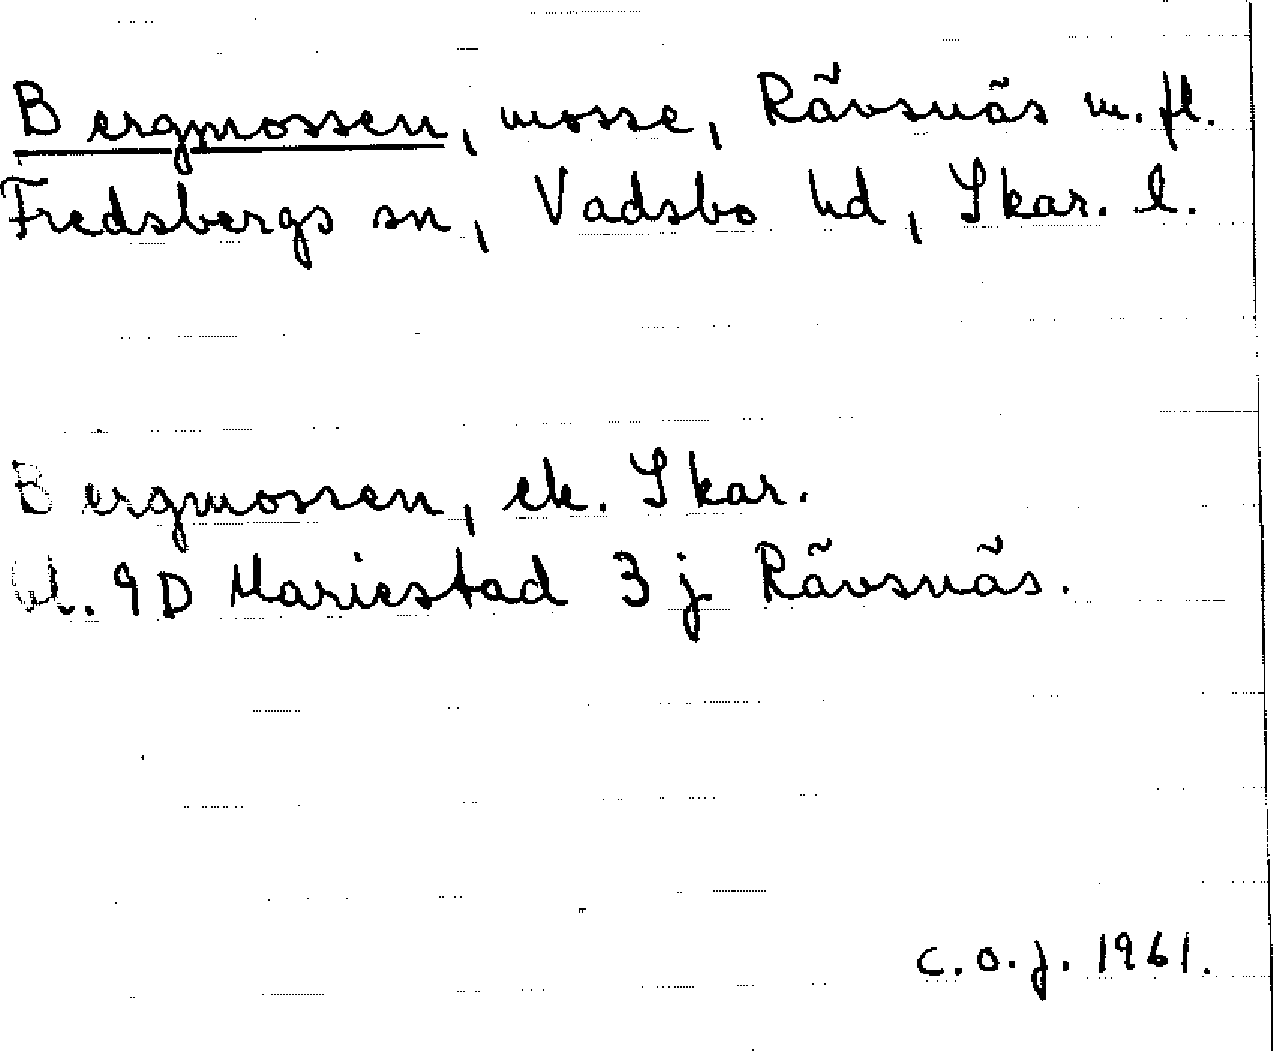 Bergmossen, mosse, Rävsnäs m. fl.
Fredsbergs sn, Vadsbo hd, Skar. l.
Bergmossen, ek. Skar.
bl. 9D Mariestad 3j Rävsnäs.
C.O.J. 1961.